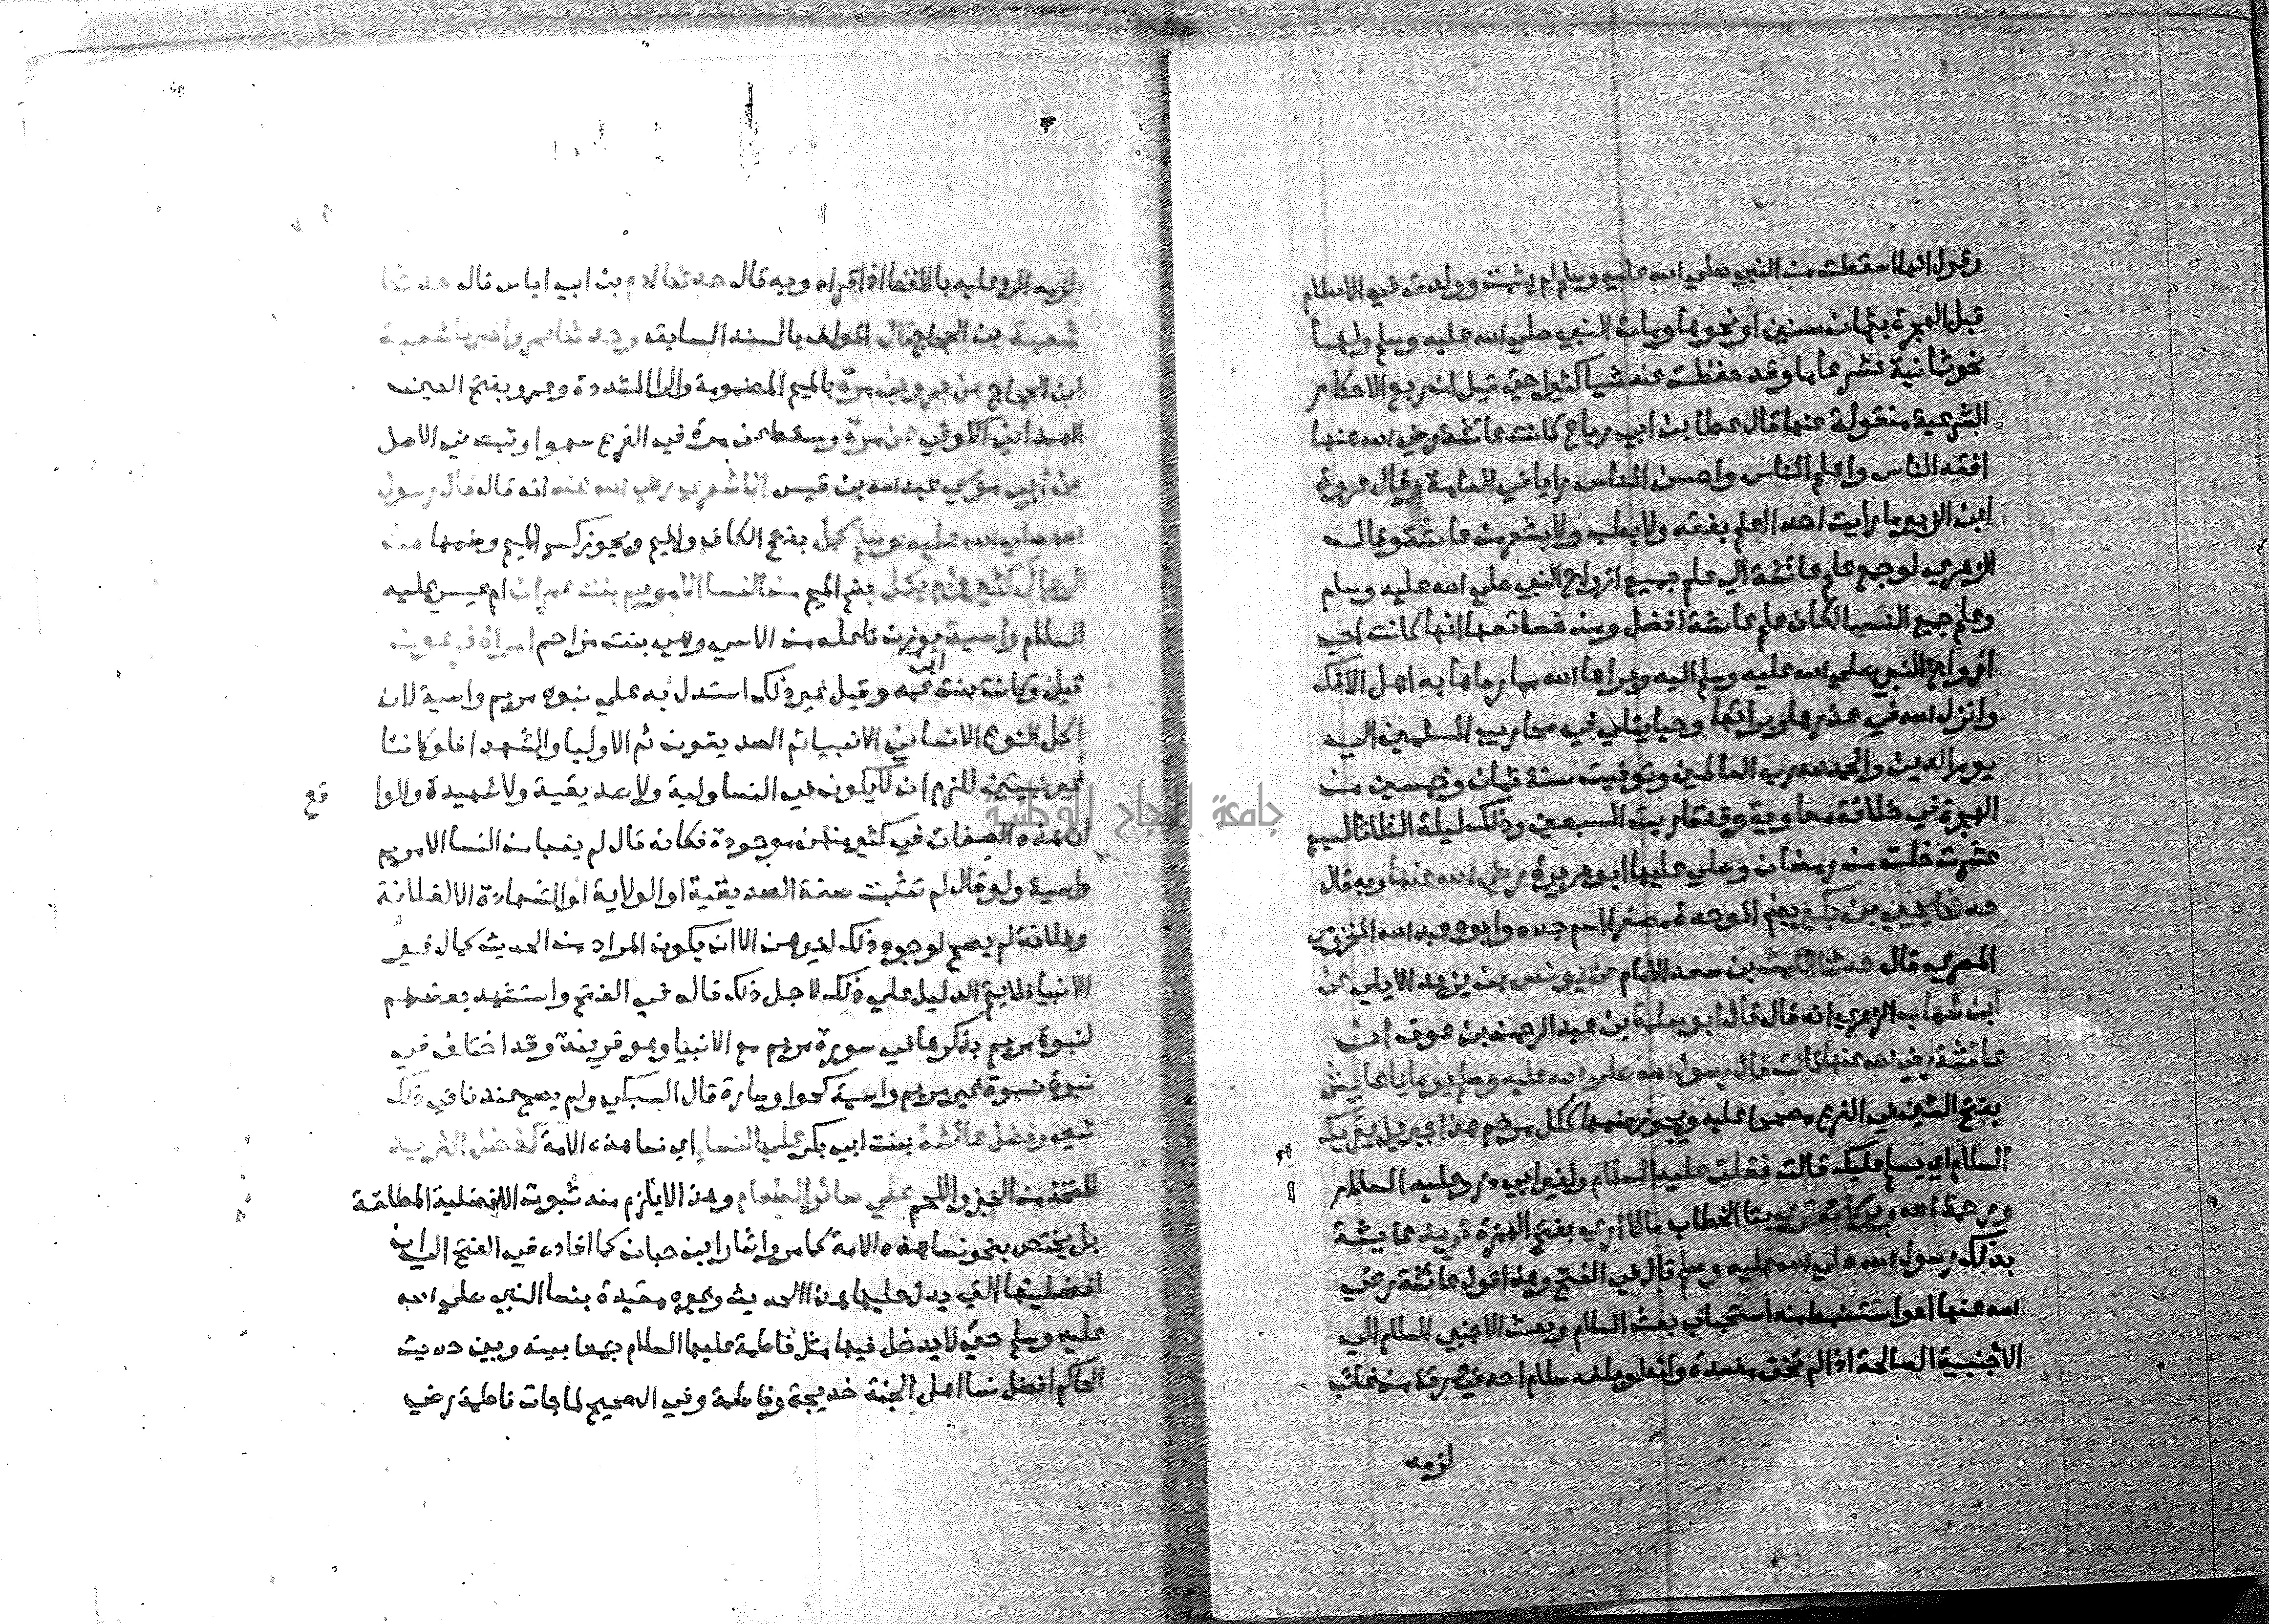 وقول انها اسقطت من النبي صلي الله عليه وسلم لم يثبت وولدت في الاسلام
قبل الهجرة بثمان سنين او نحوها ومات النبي صلي الله عليه وسلم ولها
نحو ثمانية عشر عاما وقد حفظت عنه شيا كثيرا حتي قيل ان ربع الاحكام
الشرعية منقولة عنها قال عطا بن ابي رباح كانت عائشة رضي الله عنها
افقه الناس واعلم الناس واحسن الناس رايا في العامة وقال عروة
ابن الزبير ما رايت احد اعلم بفقه ولا بطب ولا بشعر من عائشة وقال
الزهري لو جمع علم عائشة الي علم جميع ازواج النبي صلي الله عليه وسلم
وعلم جميع النسا لكان علم عائشة افضل ومن خصائصها انها كانت احب
ازواج النبي صلي الله عليه وسلم اليه وبراها الله مما رماها به اهل الافك
وانزل الله في عذرها وبراتها وحيا يتلي في محاريب المسلمين الي
يوم الدين والحمد لله رب العالمين وتوفيت سنة ثمان وخمسين من
الهجرة في خلافة معاوية وقد قاربت السبعين وذلك ليلة الثلاثا لسبع
عشرت خلت من رمضان وصلي عليها ابو هريرة رضي الله عنها وبه قال
حدثنا يحيي بن بكير بضم الموحدة مصغرا اسم جده وابوه عبد الله المخزومي
المصري قال حدثنا الليث بن سعد الامام عن يونس بن يزيد الايلي عن
ابن شهاب الزهري انه قال قال ابو سلمة بن عبد الرحمن بن عوف ان
عائشة رضي الله عنها قالت قال رسول الله صلي الله عليه وسلم يوما يا عايش
بفتح الشين في الفرع مصححا عليه ويجوز ضمها ككل مرخم هذا جبريل يقريك
السلام اي يسلم عليك قالت فقلت عليه السلام ولغير ابي ذر وعليه السلام
ورحمة الله وبركاته تري بتا الخطاب ما لا اري بفتح الهمزة تريد عايشة
بذلك رسول الله صلي الله عليه وسلم قال في الفتح وهذا قول عائشة رضي
الله عنها واستنبط منه استحباب بعث السلام وبعث الاجنبي السلام الي
الاجنبية الصالحة اذا لم تخف مفسدة وانه لو بلغه سلام احد في ورقة من غائب
لزمه
لزمه الرد عليه باللفظ اذا قراه وبه قال حدثنا ادم بن ابي اياس قال حدثنا
شعبة بن الحجاج قال المولف بالسند السابق وحدثنا عمرو اخبرنا شعبة
ابن الحجاج عن عمرو بن مرة بالميم المضمومة والرا المشددة وعمرو بفتح العين
الهمداني الكوفي عن مرة وسقط عن مرة في الفرع سهوا وثبت في الاصل
عن ابي موسي عبد الله بن قيس الاشعري رضي الله عنه انه قال قال رسول
الله صلي الله عليه وسلم كمل بفتح الكاف والميم ويجوز كسر الميم وضمها من
الرجال كثير ولم يكمل بضم الميم من النسا الا مريم بنت عمران ام عيسي عليه
السلام واسية بوزن فاعلة من الاسي وهي بنت مزاحم امراة فرعون
قيل وكانت بنت عمه وقيل غير ذلك استدل به علي نبوه مريم واسية لان
اكمل النوع الانساني الانبيا ثم الصديقون ثم الاوليا والشهدا فلو كانتا
غير نبيتين للزم ان لا يكون في النسا ولية ولا صديقية ولا شهيدة والوا قع
ان هذه الصفات في كثير منهن موجودة فكانه قال لم ينبا من النسا الا مريم
واسية ولو قال لم تثبت صفة الصديقية او الولاية او الشهادة الا لفلانة
وفلانة لم يصح لوجود ذلك لغيرهن الا ان يكون المراد من الحديث كمال غير
الانبيا فلا يتم الدليل علي ذلك لاجل ذلك قاله في الفتح واستشهد بعضهم
لنبوة مريم بذكرها في سورة مريم مع الانبيا وهو قرينة وقد اختلف في
نبوة نسوة غير مريم واسية كحوا وسارة قال السبكي ولم يصح عندنا في ذلك
شي وفضل عائشة بنت ابي بكر علي النساء اي نسا هذه الامة كفضل الثريد
المتخذ من الخبز واللحم علي سائر الطعام وهذا لا يلزم منه ثبوت الافضلية المطلقة
بل يختص بنحو نسا هذه الامة كما مر واشار ابن حبان كما افاده في الفتح الي ان
افضليتها التي يدل عليها هذا الحديث وغيره مقيدة بنسا النبي صلي الله
عليه وسلم حتي لا يدخل فيها مثل فاطمة عليها السلام جمعا بينه وبين حديث
الحاكم افضل نسا اهل الجنة خديجة وفاطمة وفي الصحيح لما جات فاطمة رضي
جامعة النجاح الوطنية